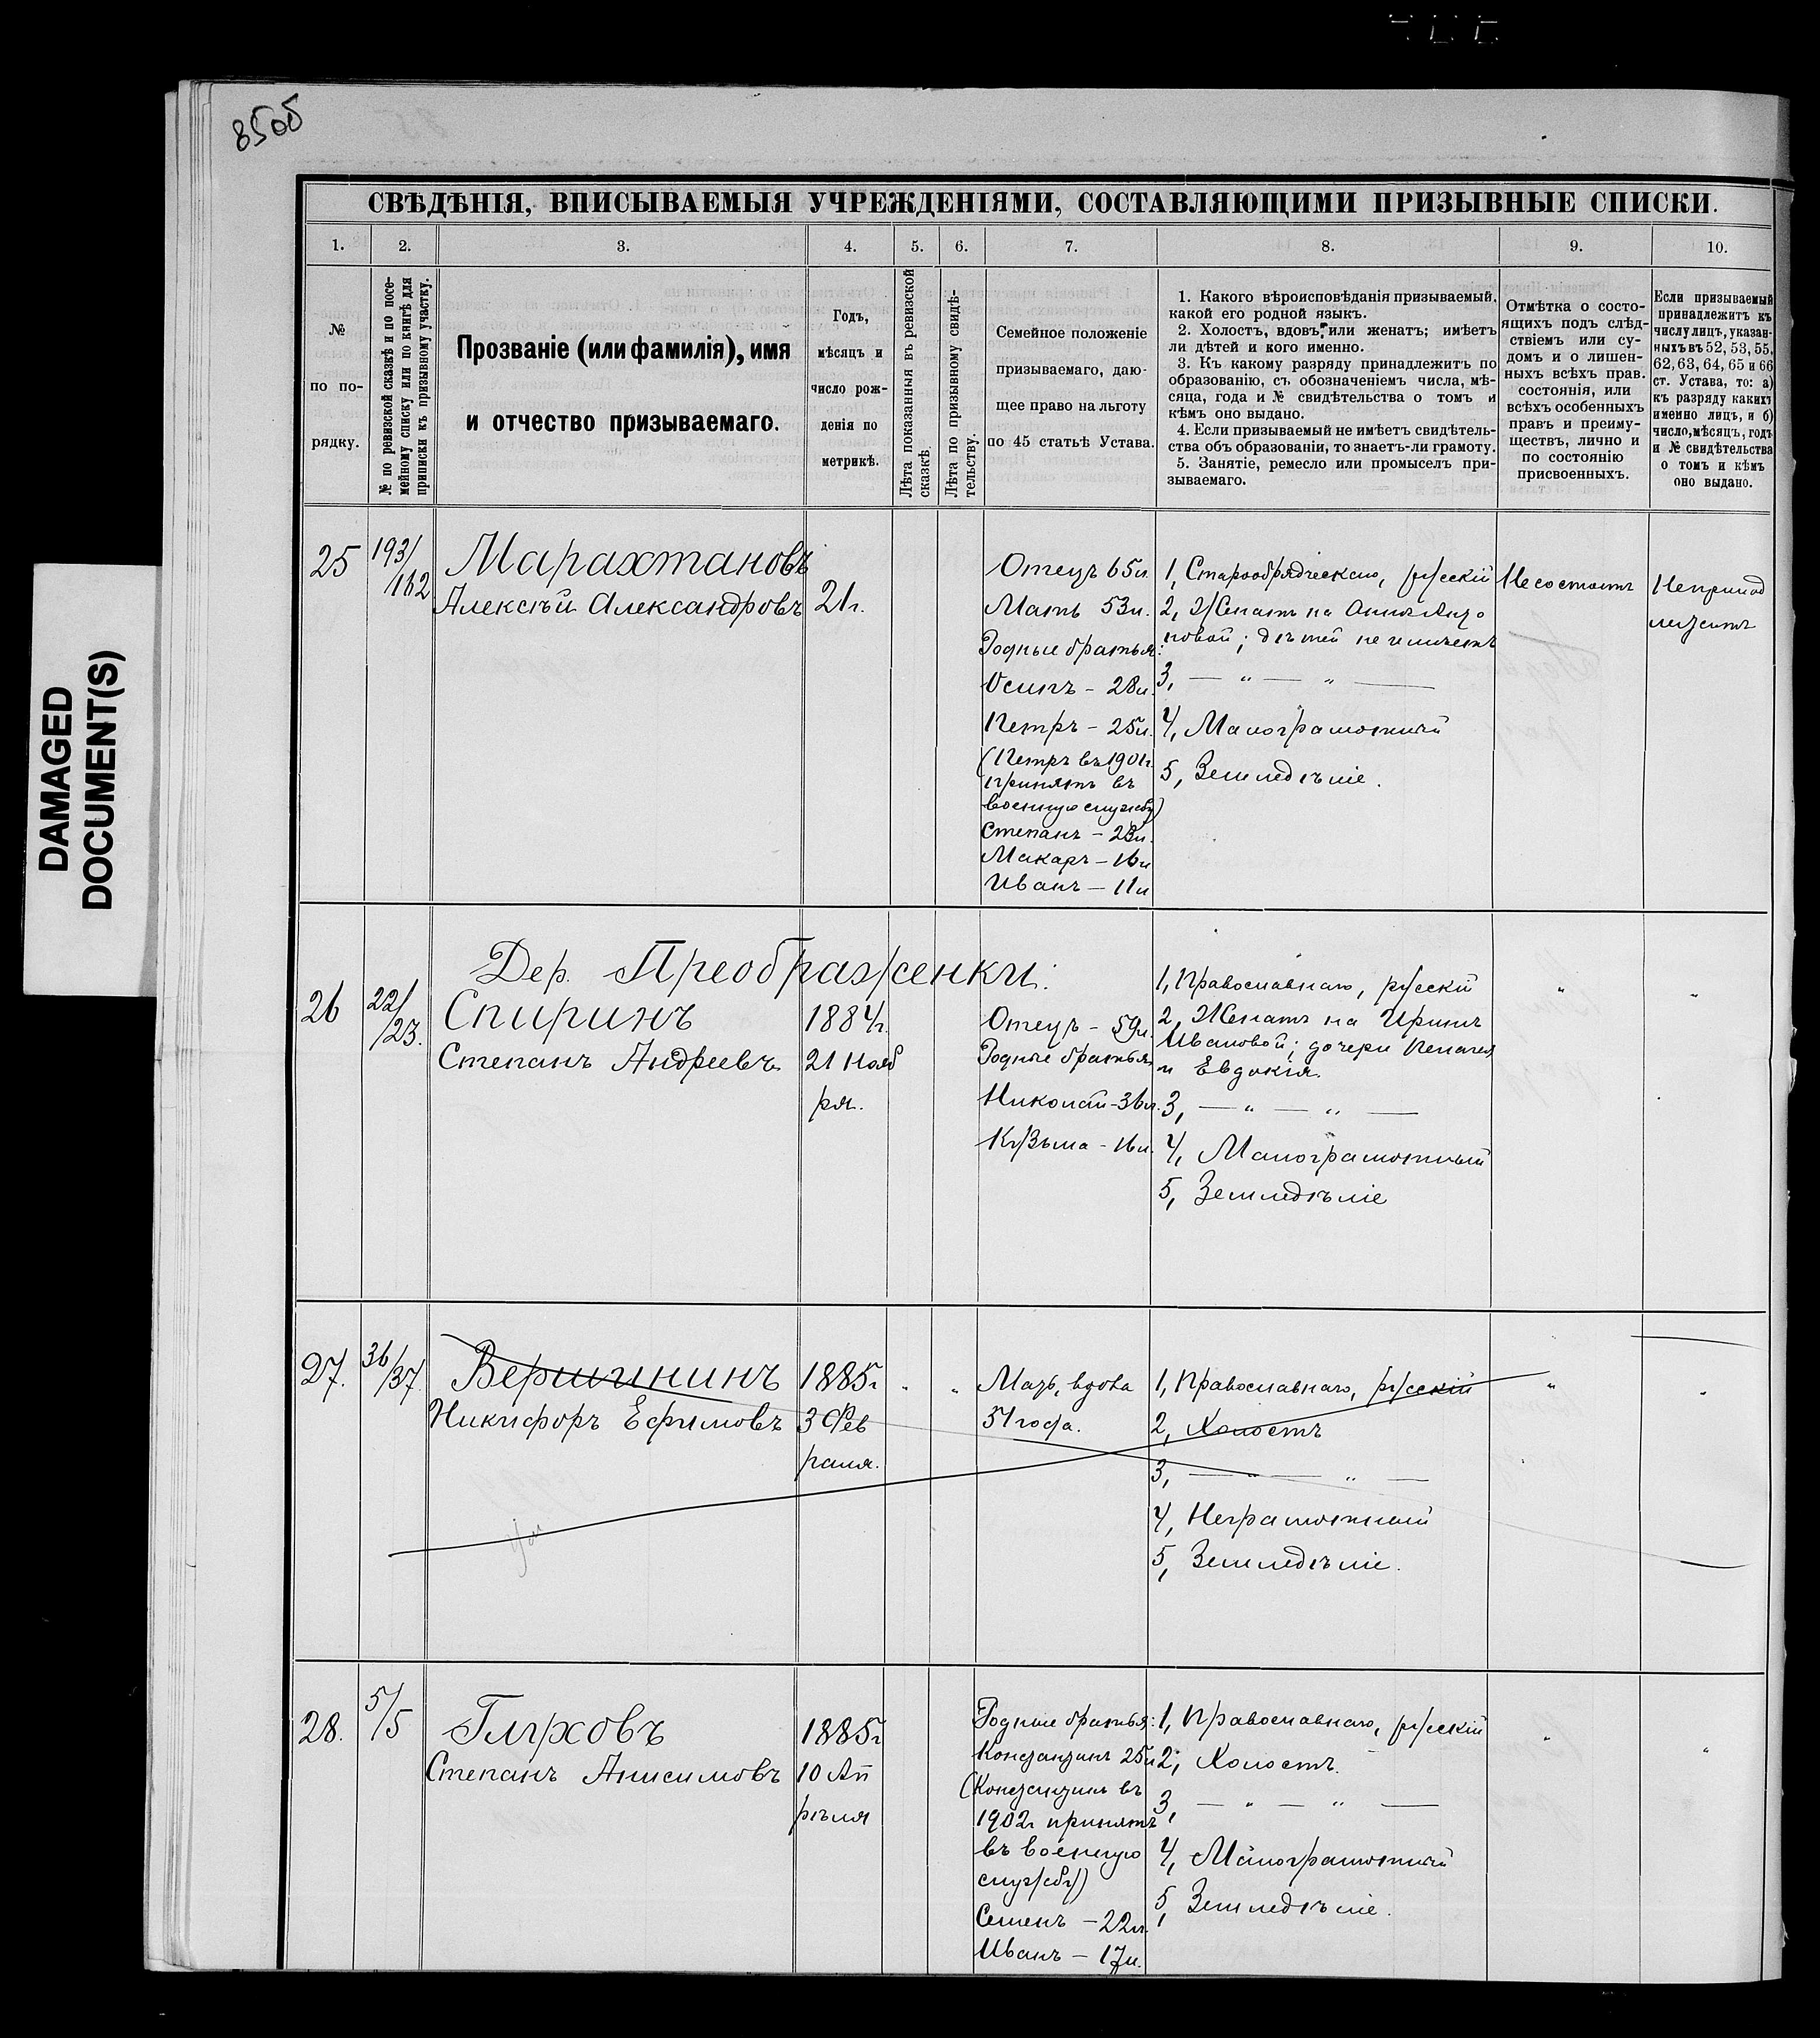 85об
DAMAGED
DOCUMENT(S)
СВѢДѢНІЯ, ВПИСЫВАЕМЫЯ УЧРЕЖДЕНІЯМИ, СОСТАВЛЯЮЩИМИ ПРИЗЫВНЫЕ СПИСКИ.
1. 2. 3. 4. 5. 6. 7. 8. 9. 10.
№
по по-
рядку.
№ по ревизской сказкѣ и по посе-
мейному списку или по книгѣ для
приписки къ призывному участку.
Прозваніе (или фамилія), имя
и отчество призываемаго.
Годъ,
мѣсяцъ и
число рож-
денія по
метрикѣ.
Лѣта показанныя въ ревизской
сказкѣ.
Лѣта по призывному свидѣ-
тельству.
Семейное положеніе
призываемаго, даю-
щее право на льготу
по 45 статьѣ Устава.
1. Какого вѣроисповѣданія призываемый,
какой его родной языкъ.
2. Холостъ, вдовъ, или женатъ; имѣетъ
ли дѣтей и кого именно.
3. Къ какому разряду принадлежитъ по
образованію, съ обозначеніемъ числа, мѣ-
сяца, года и № свидѣтельства о томъ и
кѣмъ оно выдано.
4. Если призываемый не имѣетъ свидѣтель-
ства объ образованіи, то знаетъ-ли грамоту.
5. Занятіе, ремесло или промыселъ при-
зываемаго.
Отмѣтка о состо-
ящихъ подъ слѣд-
ствіемъ или су-
домъ и о лишен-
ныхъ всѣхъ прав.
состоянія, или
всѣхъ особенныхъ
правъ и преиму-
ществъ, лично и
по состоянію
присвоенныхъ.
Если призываемый
принадлежитъ къ
числу лицъ, указан-
ныхъ въ 52, 53, 55,
62, 63, 64, 65 и 66
ст. Устава, то: а)
къ разряду какихъ
именно лицъ, и б)
число, мѣсяцъ, годъ
и № свидѣтельства
о томъ и кѣмъ
оно выдано.
25
193/
/162
Марахтановъ
Алексѣй Александровъ
21г.
Отецъ 65л.
Мать 53л.
Родные братья:
Осипъ – 28л.
Петръ – 25л.
(Петръ въ 1901г.
принятъ въ
военную службу)
Степанъ – 23л.
Макаръ – 16л
Иванъ – 11л
1, Старообрядческаго, русскій
2, Женатъ на Аннѣ Анто
новой; дѣтей не имѣетъ
3, — „ — „ —
4, Малограмотный
5, Земледѣліе.
Не состоитъ
Не принад
лежитъ
Дер. Преображенки.
26
22/
/23.
Спиринъ
Степанъ Андреевъ
1884г.
21 Нояб
ря.
Отецъ – 59л.
Родные братья
Николай – 36л.
Кузьма – 16л.
1, Православнаго, русскій
2, Женатъ на Иринѣ
Ивановой; дочери Пелагея
и Евдокія.
3, — „ — „ —
4, Малограмотный
5, Земледѣліе
„
„
27.
36/
/37.
Веришнинъ
Никифоръ Ефимовъ
1885г
3 Фев
раля.
„
„
Мать, вдова
51 года.
1, Православнаго, русскій
2, Холостъ
3, — „ — „ —
4, Неграмотный
5, Земледѣліе.
„
„
28.
5/
/5
Глуховъ
Степанъ Анисимовъ
1885г
10 Ап
рѣля
Родные братья:
Константинъ 25л
(Константинъ въ
1902г принятъ
въ военную
службу)
Семенъ – 22л.
Иванъ – 17л.
1, Православнаго, русскій
2, Холостъ.
3, — „ — „ —
4, Малограмотный
5, Земледѣліе.
„
„